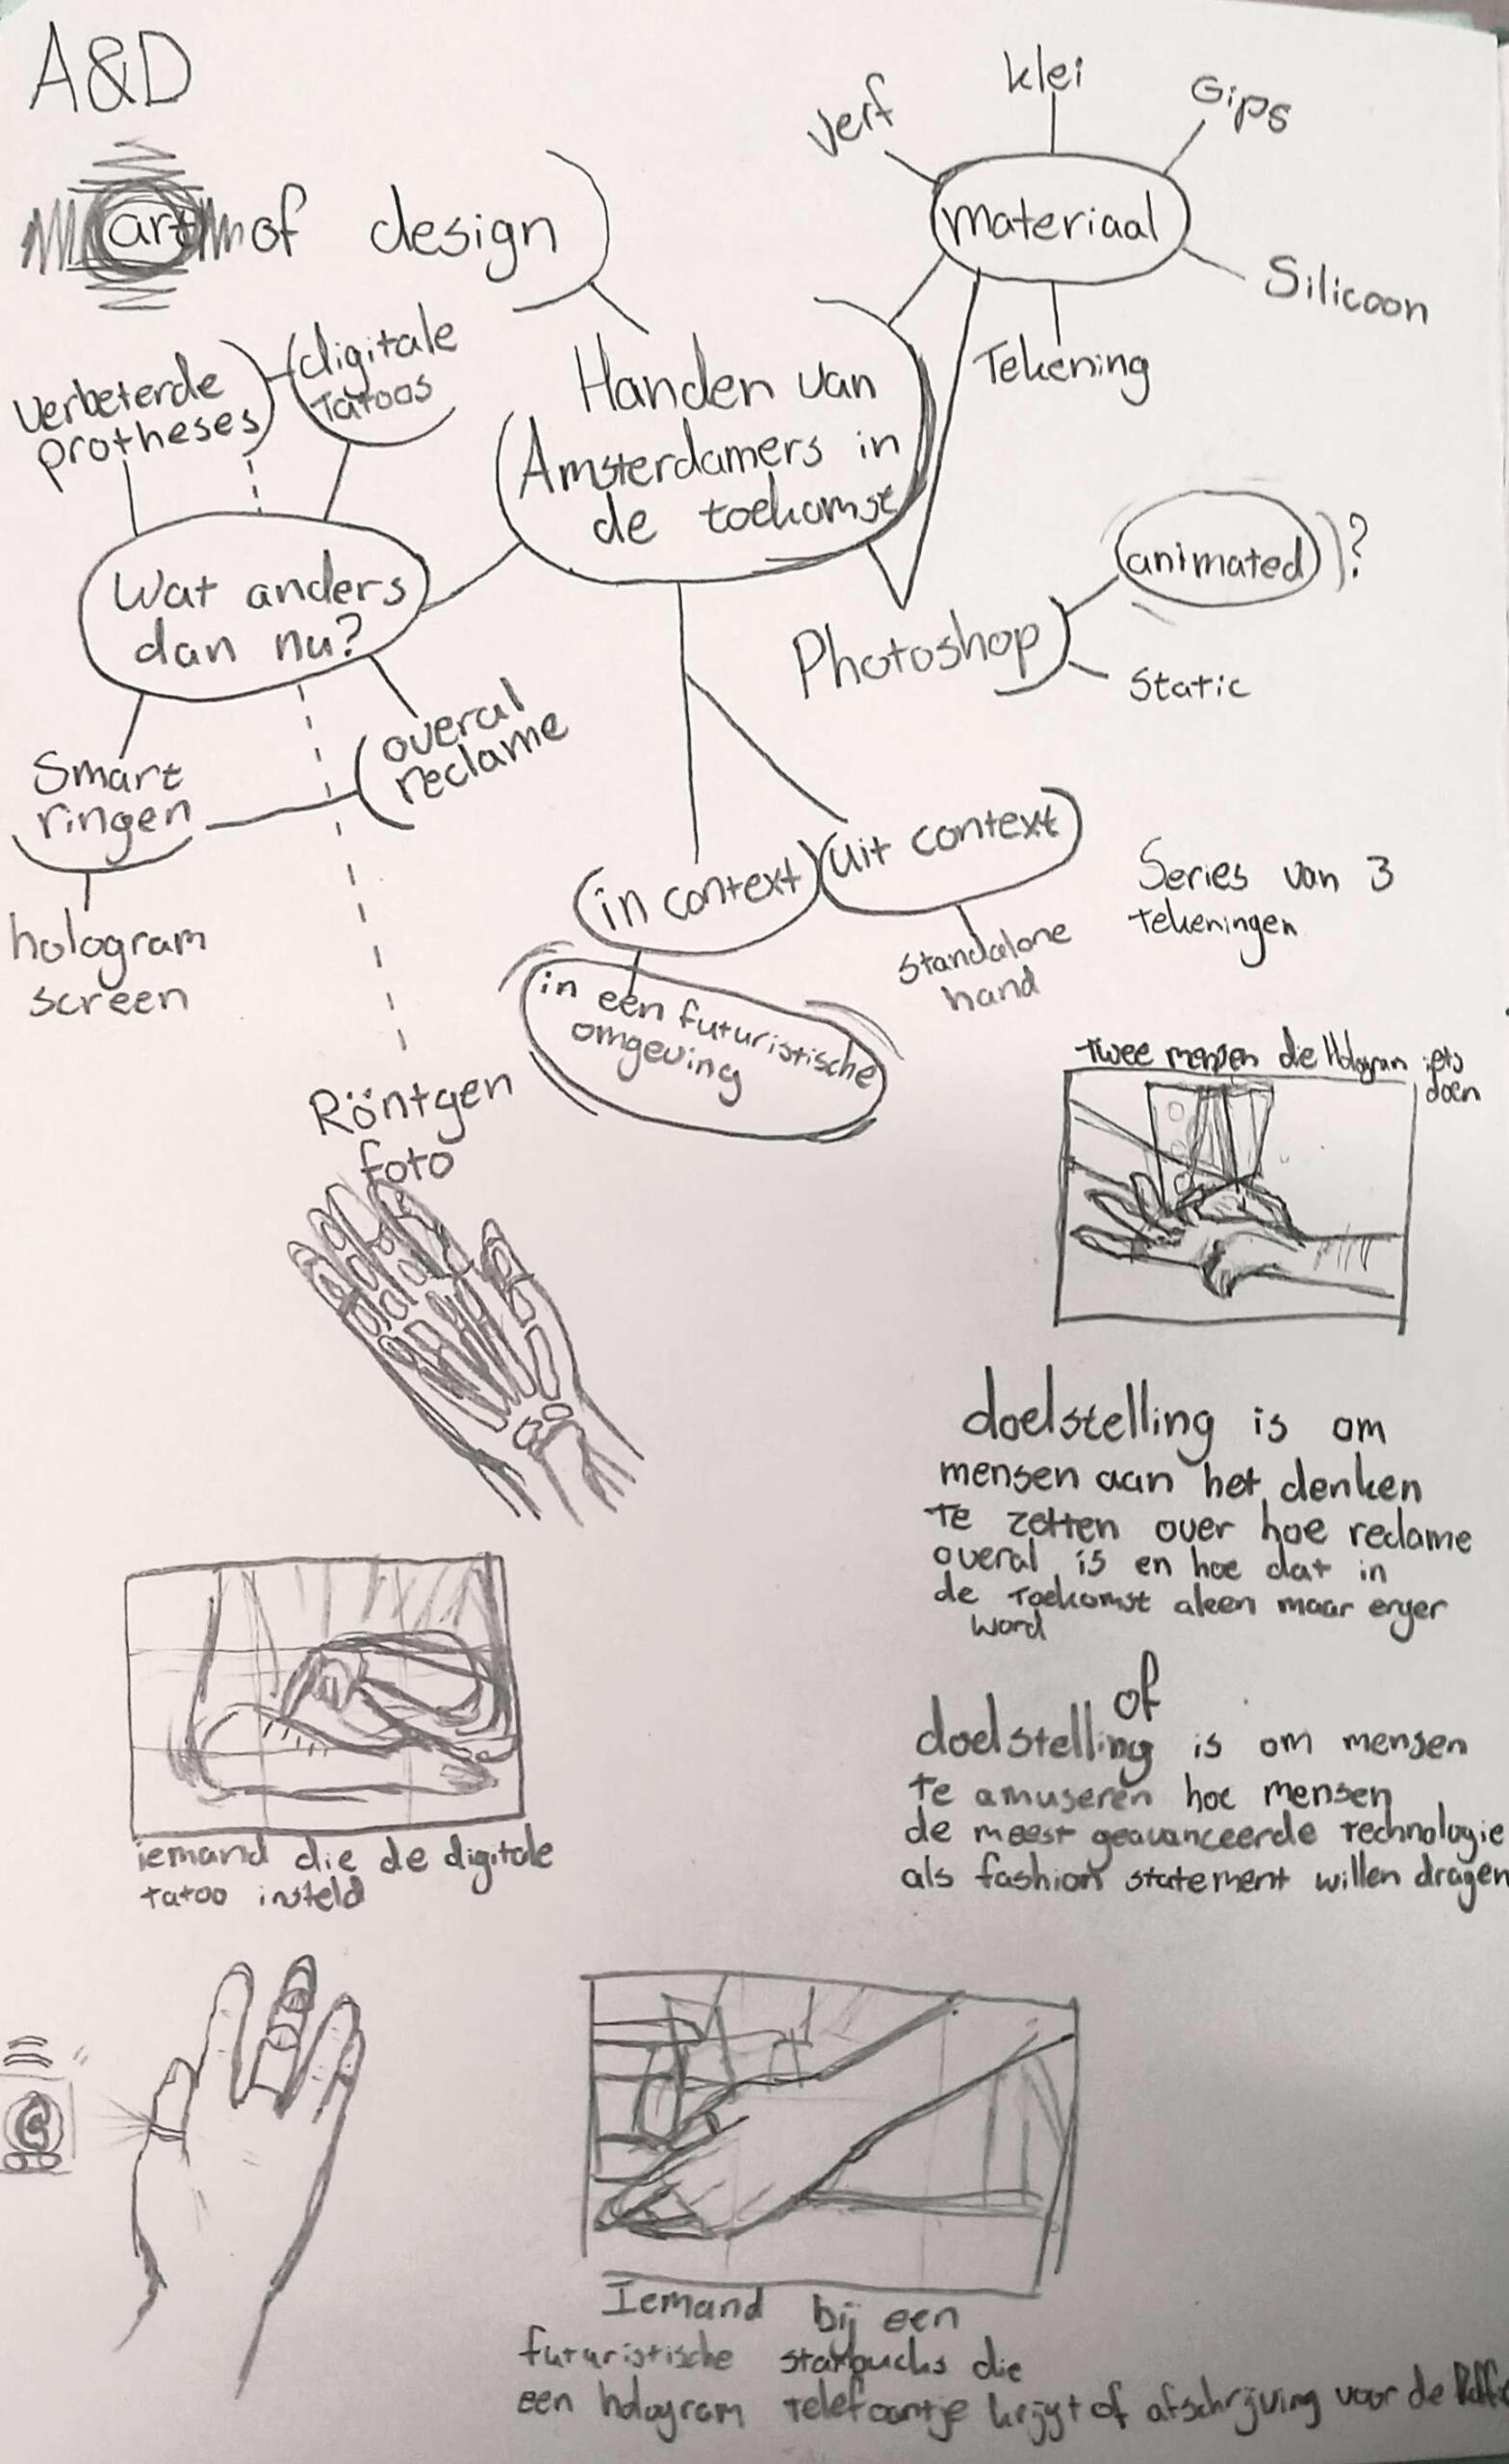 A&D
art of design
Verf
klei
Gips
materiaal
Silicoon
Tekening
Handen van
Amsterdamers in
de toekomst
verbeterde
protheses
digitale
Tatoos
Wat anders
dan nu?
Smart
ringen
hologram
screen
overal
reclame
Photoshop
animated
?
Static
in context
uit context
standalone
hand
in een futuristische
omgeving
Series van 3
tekeningen
Röntgen
foto
twee mensen die Hologram iets
doen
doelstelling is om
mensen aan het denken
te zetten over hoe reclame
overal is en hoe dat in
de toekomst aleen maar erger
word
of
doelstelling is om mensen
te amuseren hoe mensen
de meest geavanceerde technologie
als fashion statement willen dragen
iemand die de digitale
tatoo insteld
Iemand bij een
futuristische starbucks die
een hologram telefoontje krijgt of afschrijving voor de